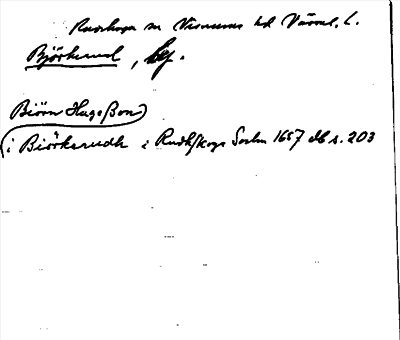 Rudskoga sn Visnums hd Värml. l.
Björkerud, by.
Biörn Hugoßon
i Biörkerudh i Rudhskoga Sochn 1657 db s. 203